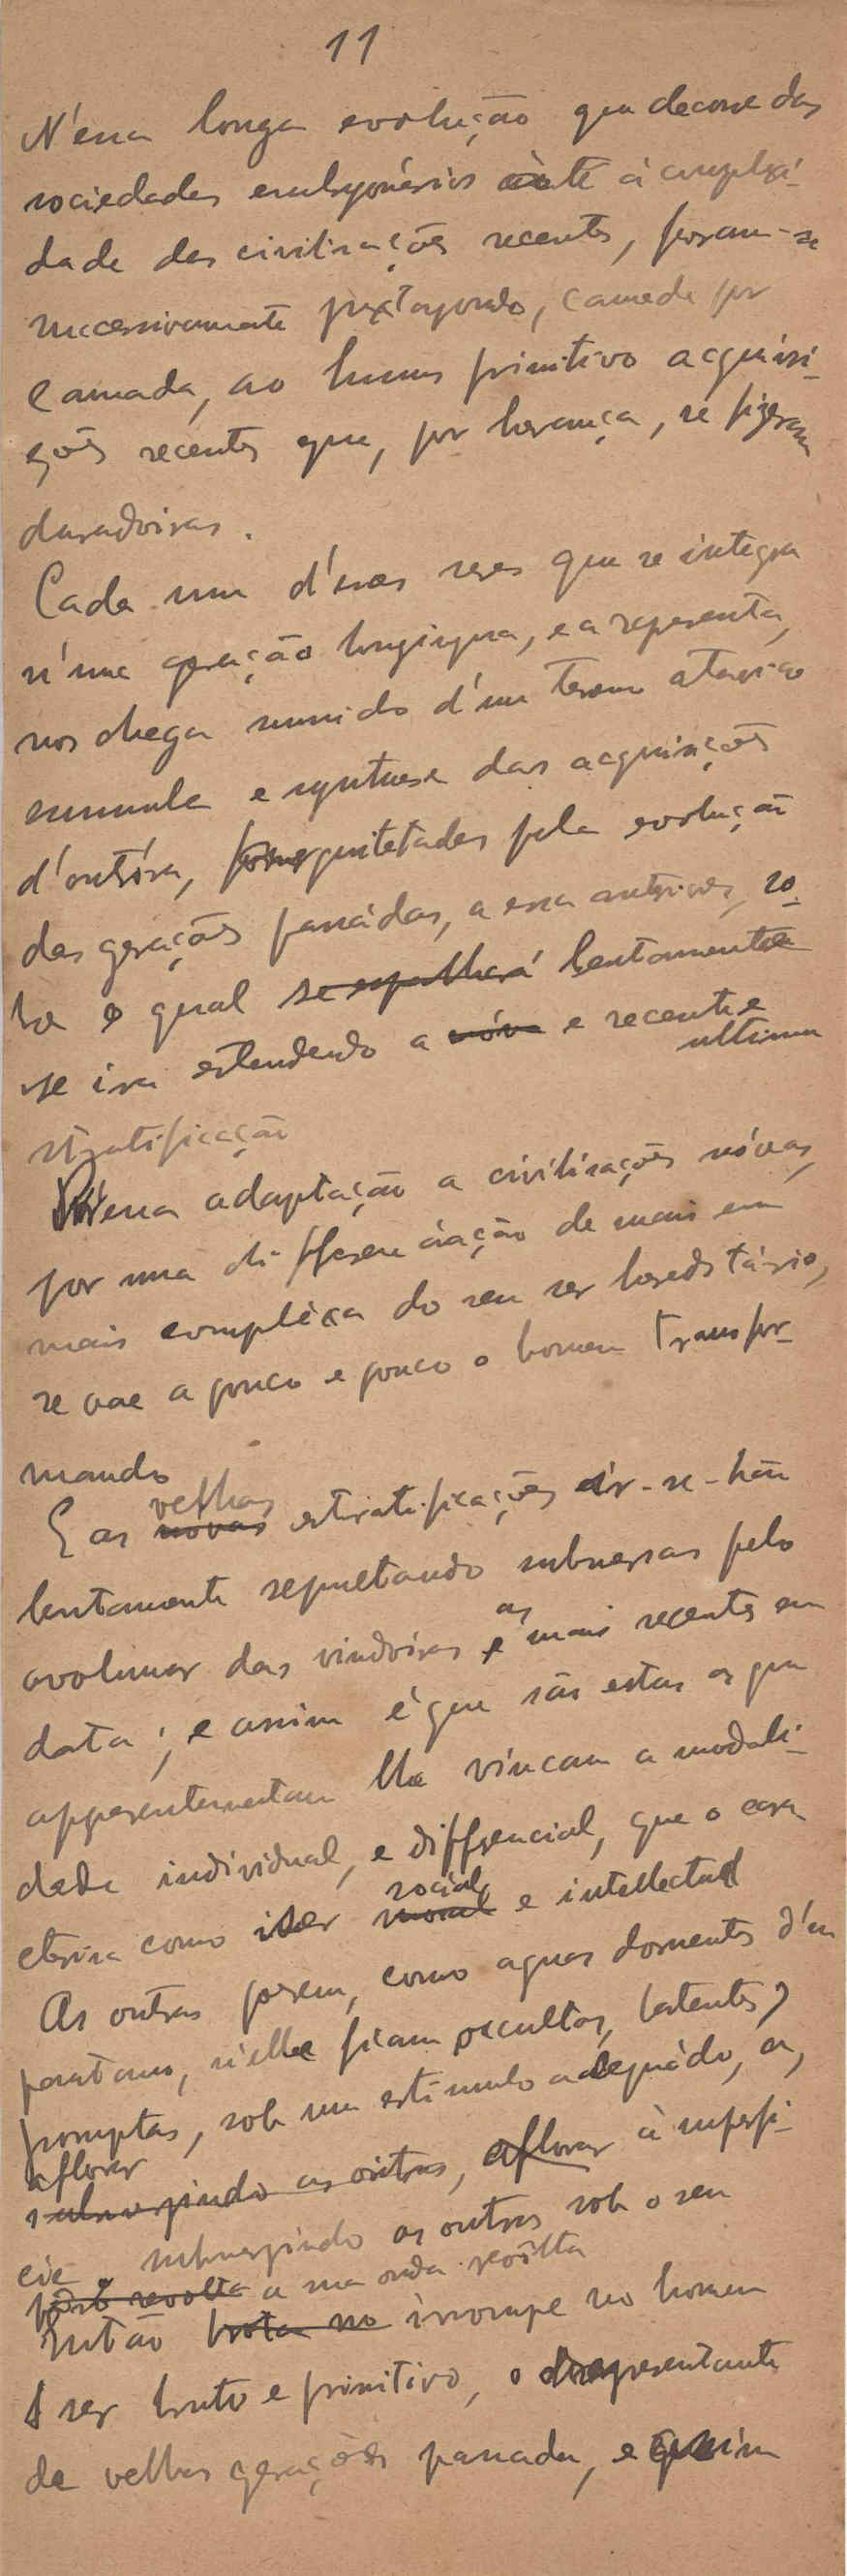 11
N'essa longa evolução que decorre das
sociedades embryonárias até á complexi-
dade das civilisações recentes, foram-se
successivamente juxtapondo, camada por
camada, ao humus primitivo acquisi-
ções recentes que, por herança, se fizeram
duradoiras.
Cada um d'esses seres que se integra
n'uma geração longiqua, e a representa,
nos chega munido d'um tesouro atavico
summula e synthese das acquisições
d'outróra, das pela evolução
das gerações passádas, a essa anteriores, so-
bre o qual se espalhará lentamente
se ira estendendo a nóva e recente e
ultima
stratificação
N'essa adaptação a civilisações nóvas,
por uma differenciação de mais em
mais complexa do seu ser hereditário,
se vae a pouco e pouco o homem transfor-
mando
velhas
E as novas estratificações ir-se-hão
lentamente sepultando submersas pelo
as
avolumar das vindoiras e mais recentes em
data; e assim é que são estas as que
apparentemente lhe vincam a modali-
dade individual, e differencial, que o cara
cterisa como ser moral e intellectual
social
As outras porem, como aguas dormentes d'um
pantano, n'elle ficam occultas, latentes,
promptas, sob um estimulo adequádo, a,
aflorar
submergindo as outras, aflorar á superfi-
cie e submergindo as outras sob o seu
revolta a sua onda revôlta
Então brota no irrompe no homem
o ser bruto e primitivo, o representante
de velhas gerações passadas, e assim